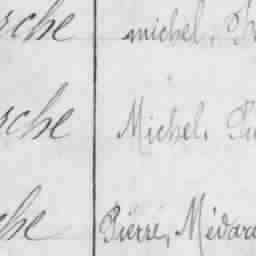 rche michel,
rche Michel.
che Pierre, Médar